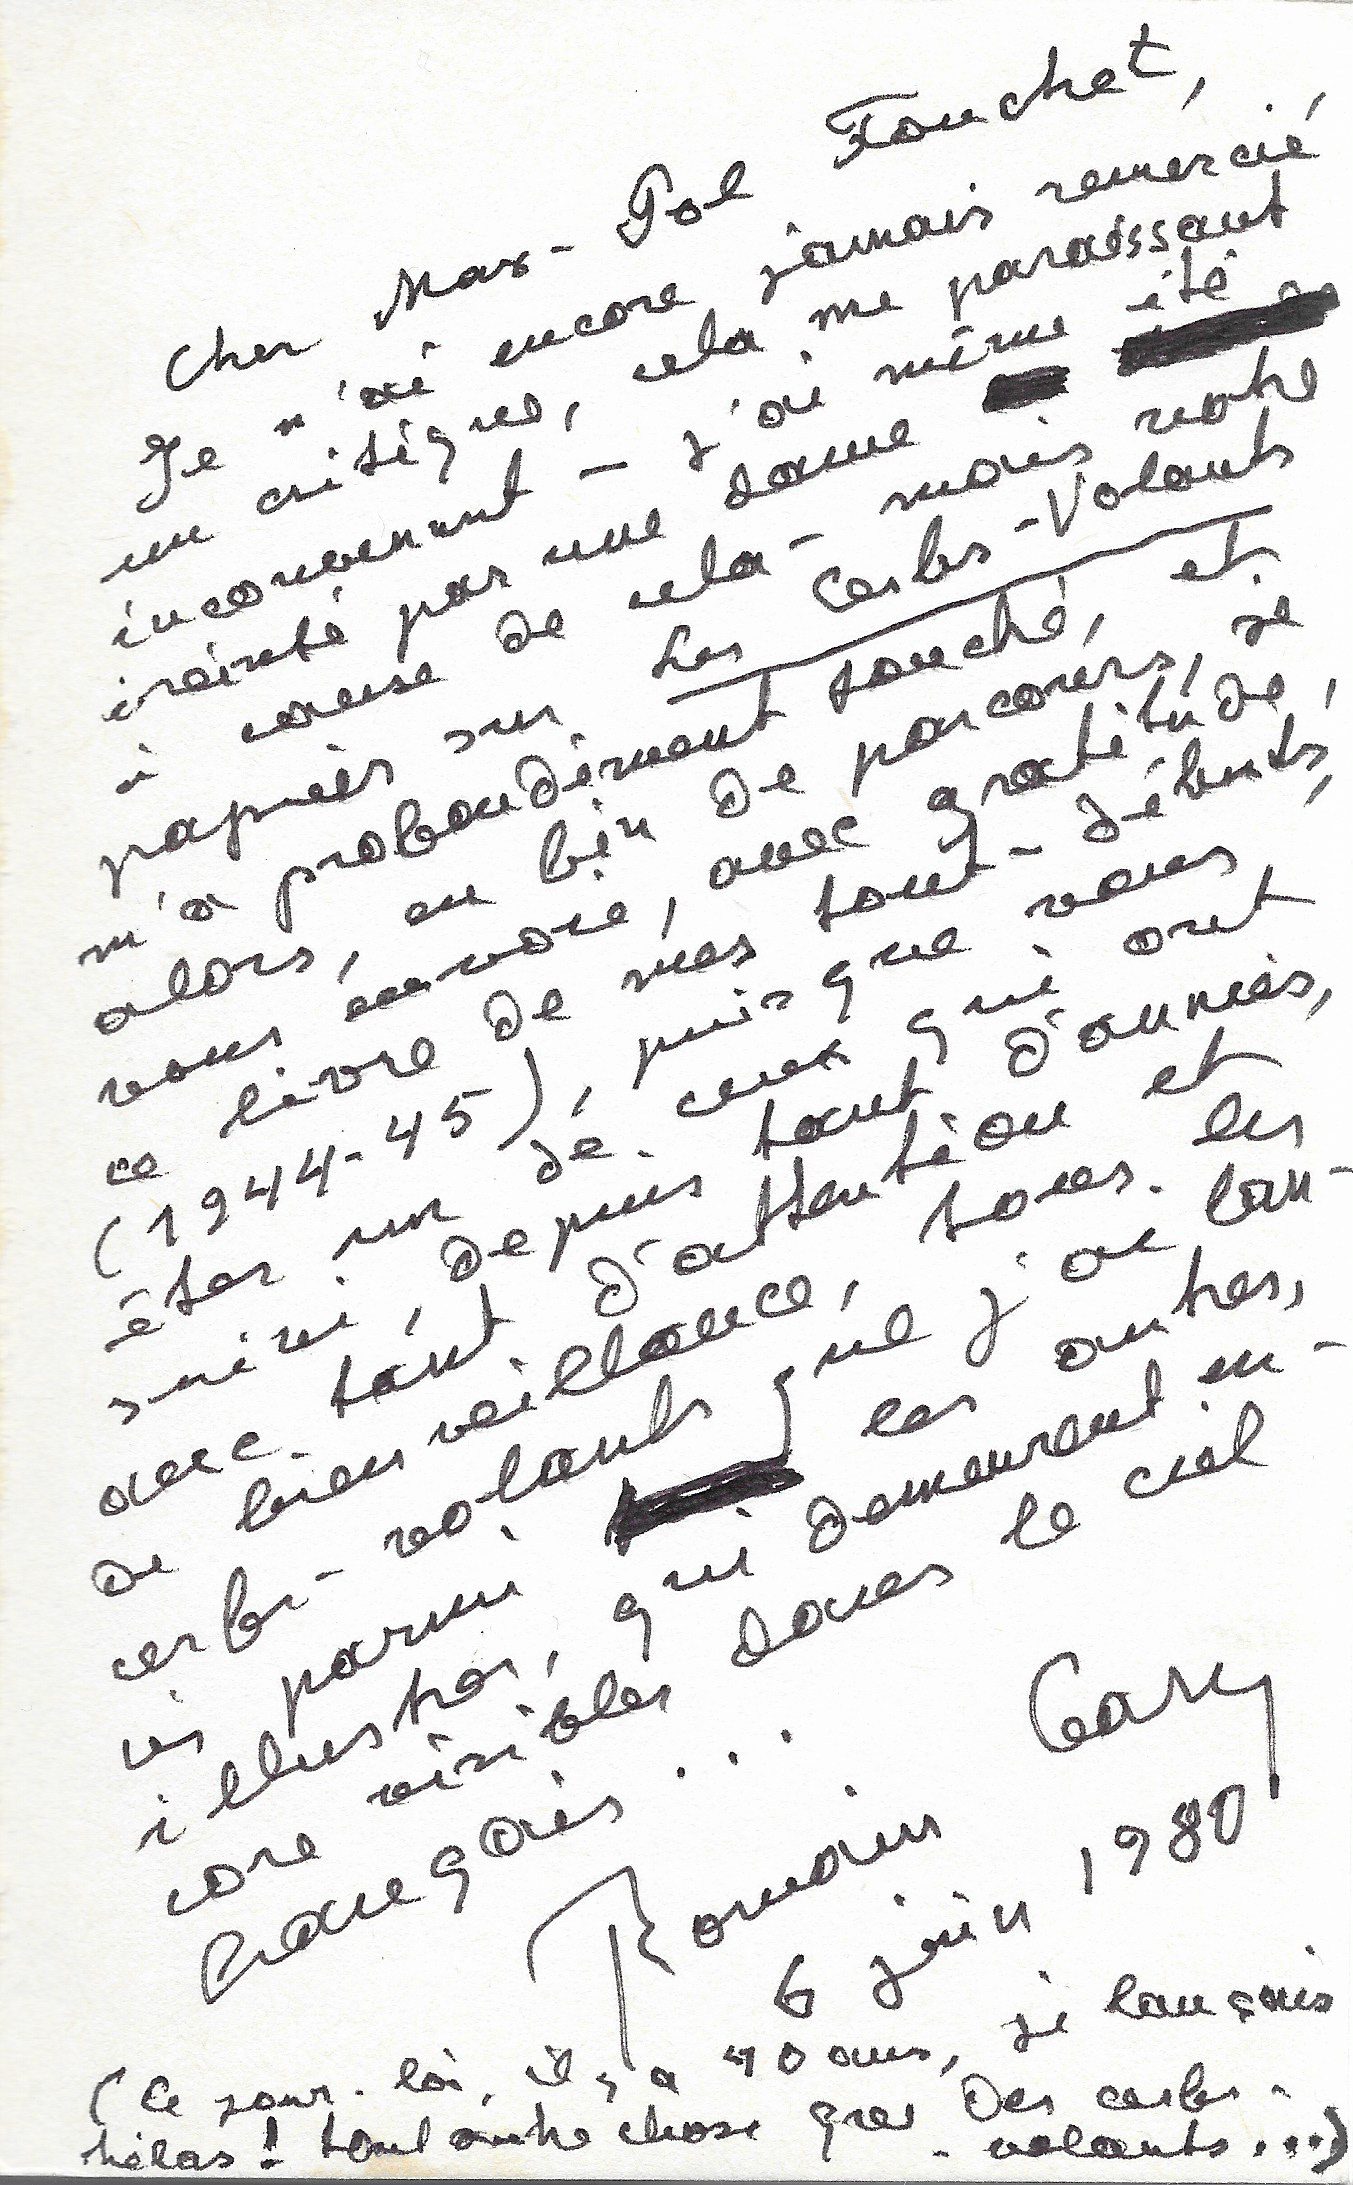 Cher Max-Pol Fouchet,
Je n'ai encore jamais remercié
un critique, cela me paraissant
inconvenant – j'ai même été
éreinté par une dame
à cause de cela – mais votre
papier sur Les Cerfs-Volants
m'a profondément touché, et
alors, en fin de parcours, je
vous envoie, avec gratitude,
ce livre de mes tout-débuts,
(1944-45), puisque vous
êtes un de ceux qui ont
suivi, depuis tant d'années,
avec tant d'attention et
de bienveillance, tous les
cerfs-volants que j'ai lan-
cés parmi les autres,
illustres, qui demeurent en-
core visibles dans le ciel
français...
Romain Gary
6 juin 1980
(Ce jour-là, il y a 40 ans, je lançais
hélas! tout autre chose que des cerfs-
volants...)